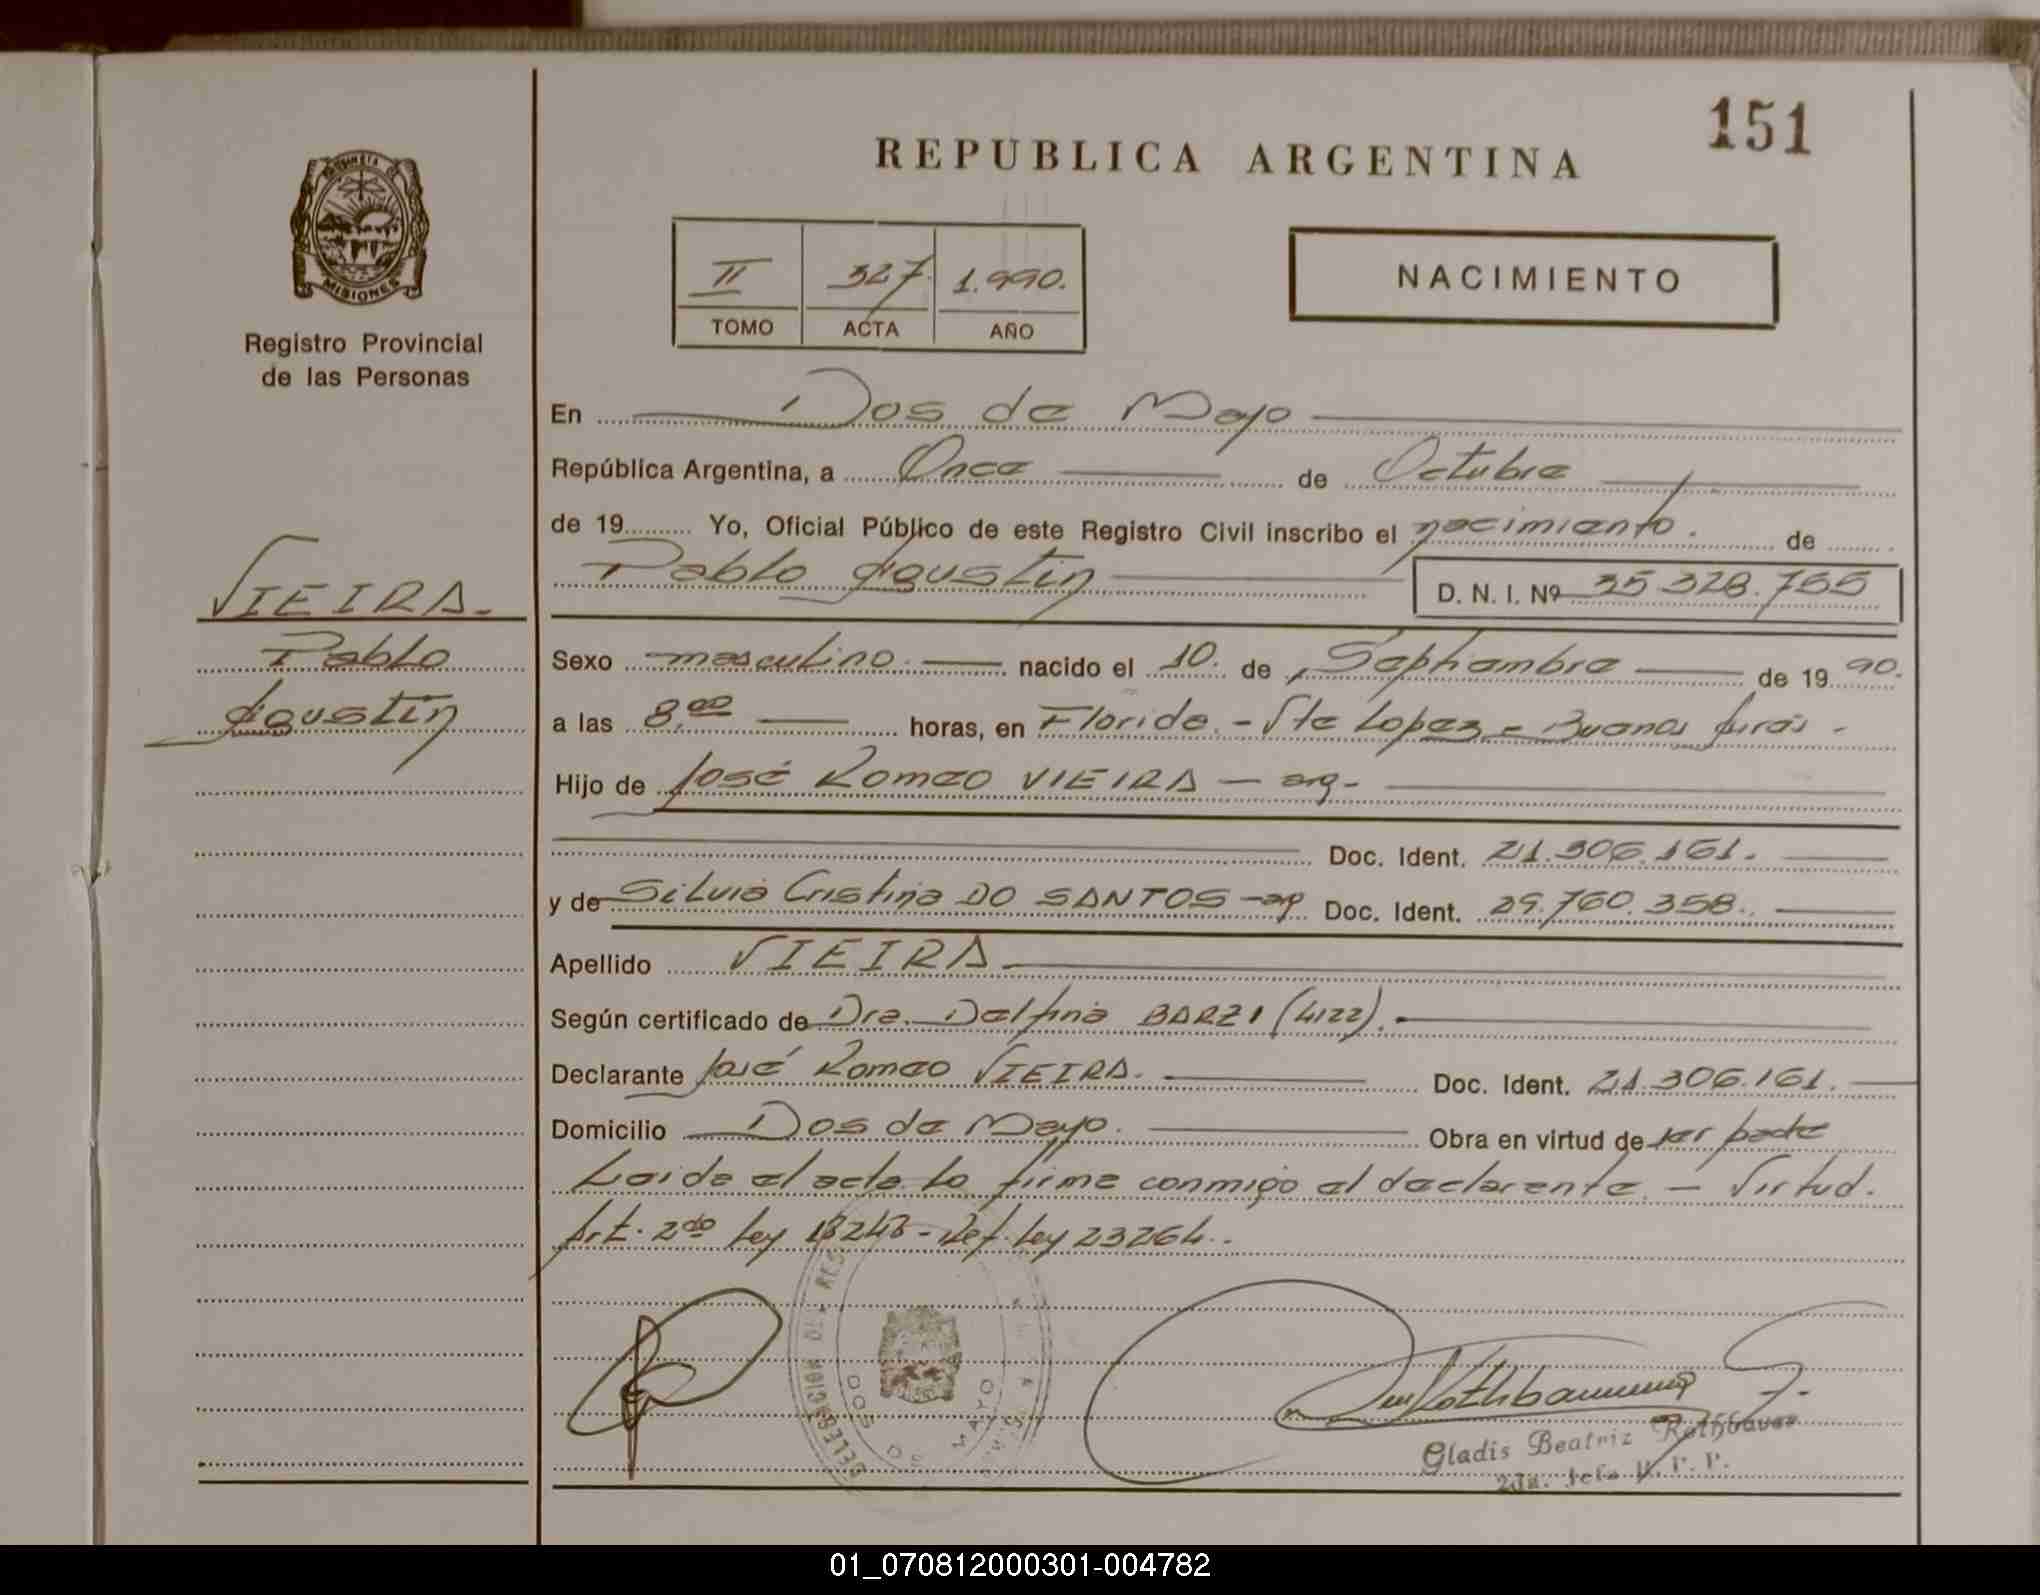 151
REPUBLICA ARGENTINA
MISIONES
Registro Provincial
de las Personas
II 327 1.990.
TOMO ACTA AÑO
NACIMIENTO
En Dos de Mayo
República Argentina, a Once de Octubre
de 19 Yo, Oficial Público de este Registro Civil inscribo el nacimiento. de
Pablo Agustin D. N. I. Nº 35 328.755
VIEIRA.
Pablo
Agustin
Sexo masculino. nacido el 10. de Sephiambre de 19 90.
a las 8,00 horas, en Florida. - Vte Lopez - Buenos Aires -
Hijo de José Romeo VIEIRA - arg-
Doc. Ident. 21.306.161.
y de Silvia Cristina DO SANTOS - arg Doc. Ident. 29.760.358.
Apellido VIEIRA
Según certificado de Dra. Delfina BARZI (4122).
Declarante José Romeo VIEIRA. Doc. Ident. 21.306.161.
Domicilio Dos de Mayo. Obra en virtud de ser padre
Leida el acta la firma conmigo el declarante. - Virtud.
Art. 2do Ley 18248 - Ref. Ley 23264.
DELEGACION
DOS DE MAYO
Gladis Beatriz
01_070812000301-004782